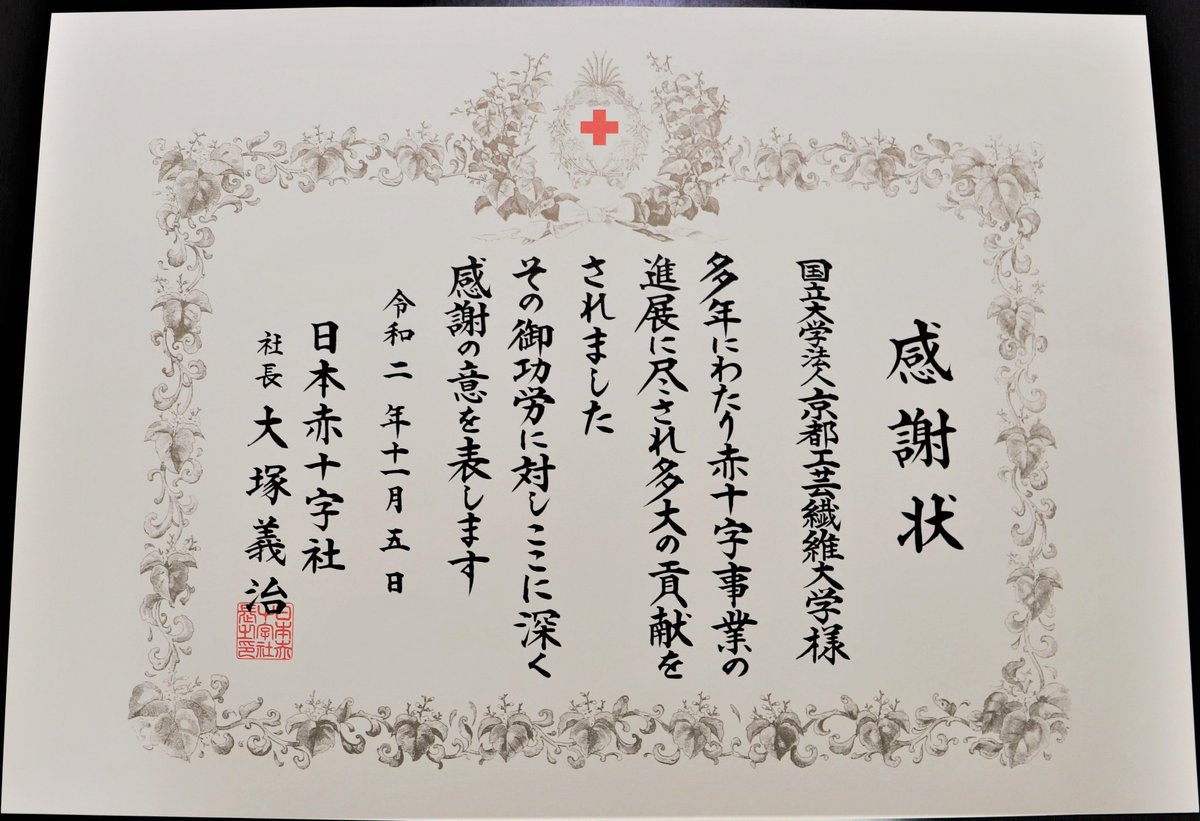 感謝状
国立大学法人京都工芸繊維大学様
多年にわたり赤十字事業の
進展に尽され多大の貢献を
されました
その御功労に対しここに深く
感謝の意を表します
令和二年十一月五日
日本赤十字社
社長 大塚義治
日本赤
十字社
長之印